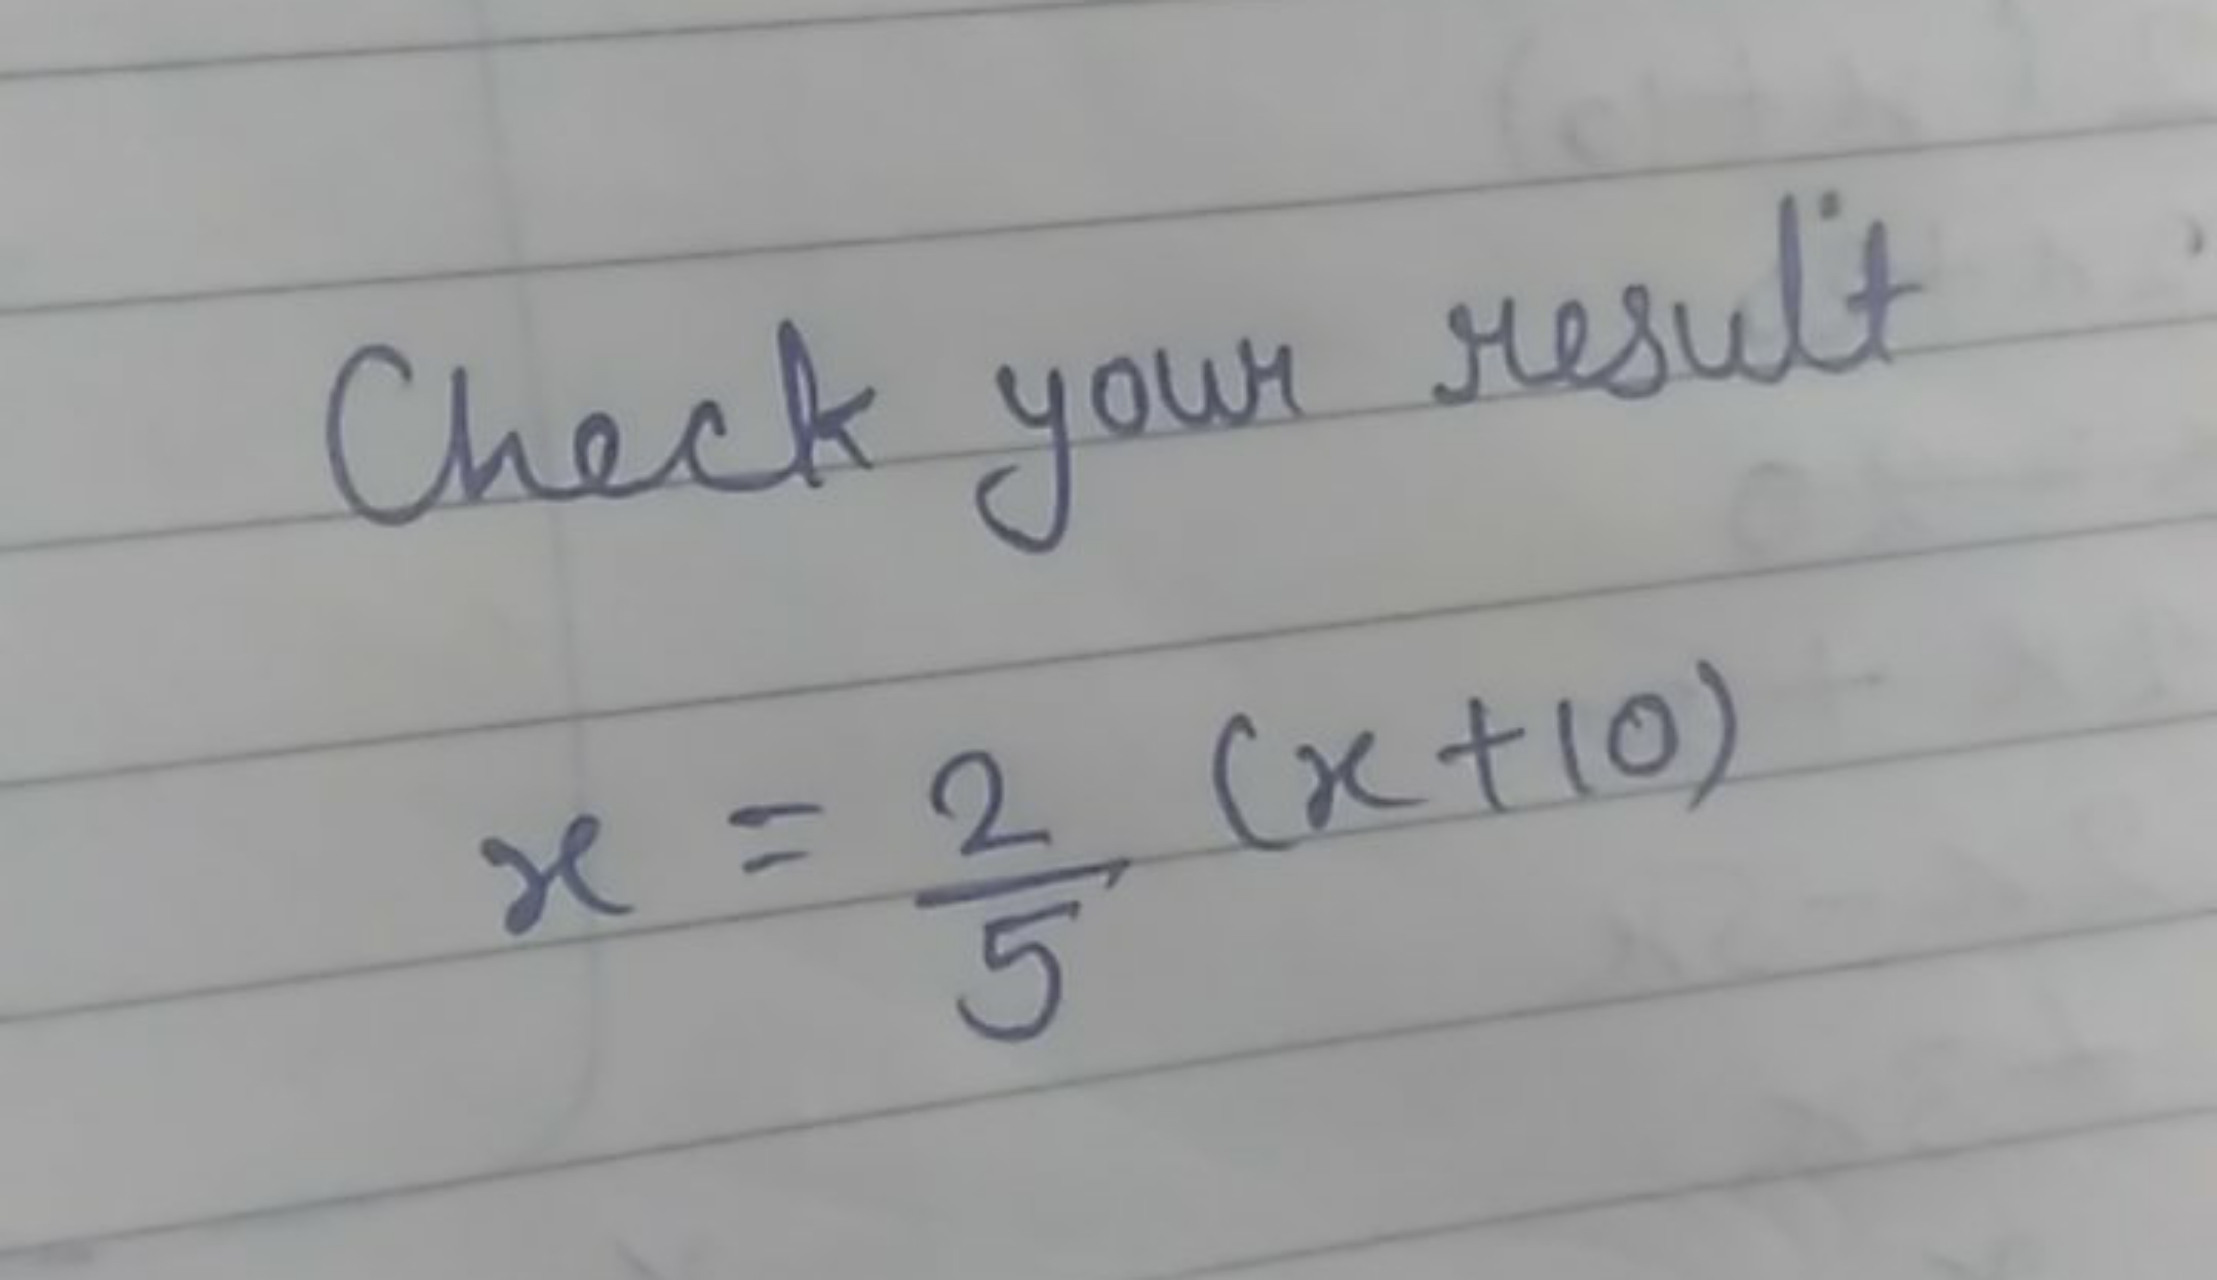 Check your result
x = 2/5 (x+10)